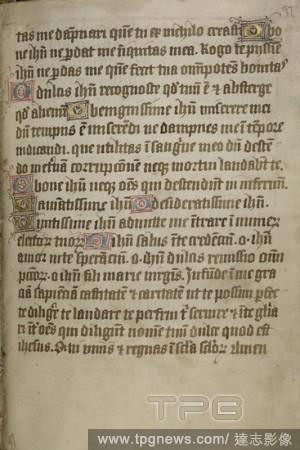 tas me dapnari que tu ex nichilo creasti O bo
ne ihu ne perdat me iniquitas mea. Rogo te pijssime
ihu ne perdas me que fecit tua omnipotens bonitas
O dulcis ihu recognosce qd tuu e & absterge
qd alienu O benignissime ihu miserere mei
du tempus e miserendi ne dampnes me i tempore
iudicandi. que utilitas i sanguine meo du descen
do i eternam corrupcione neqz mortui laudabut te
bone ihu neqz oes qui descendunt in infernum.
O amantissime ihu O desideratissime ihu.
O mitissime ihu admitte me intrare i numer
electorum tuorum O ihu salus i te credenciu. o ihu
amor i te speranciu. O ihu dulcis remissio omniu
peccatorum. o ihu fili marie virginis. Infunde i me gra
ciam sapienciam castitatem & caritatem ut te possim perfecte
te diligere te laudare te perfrui & servire & i te gloria
ri & oes qui diligunt nomen tuum dulce quod est
ihesus. Qui vivis & regnas in secula seculorum amen
TPG
www.tpgnews.com/達志影像